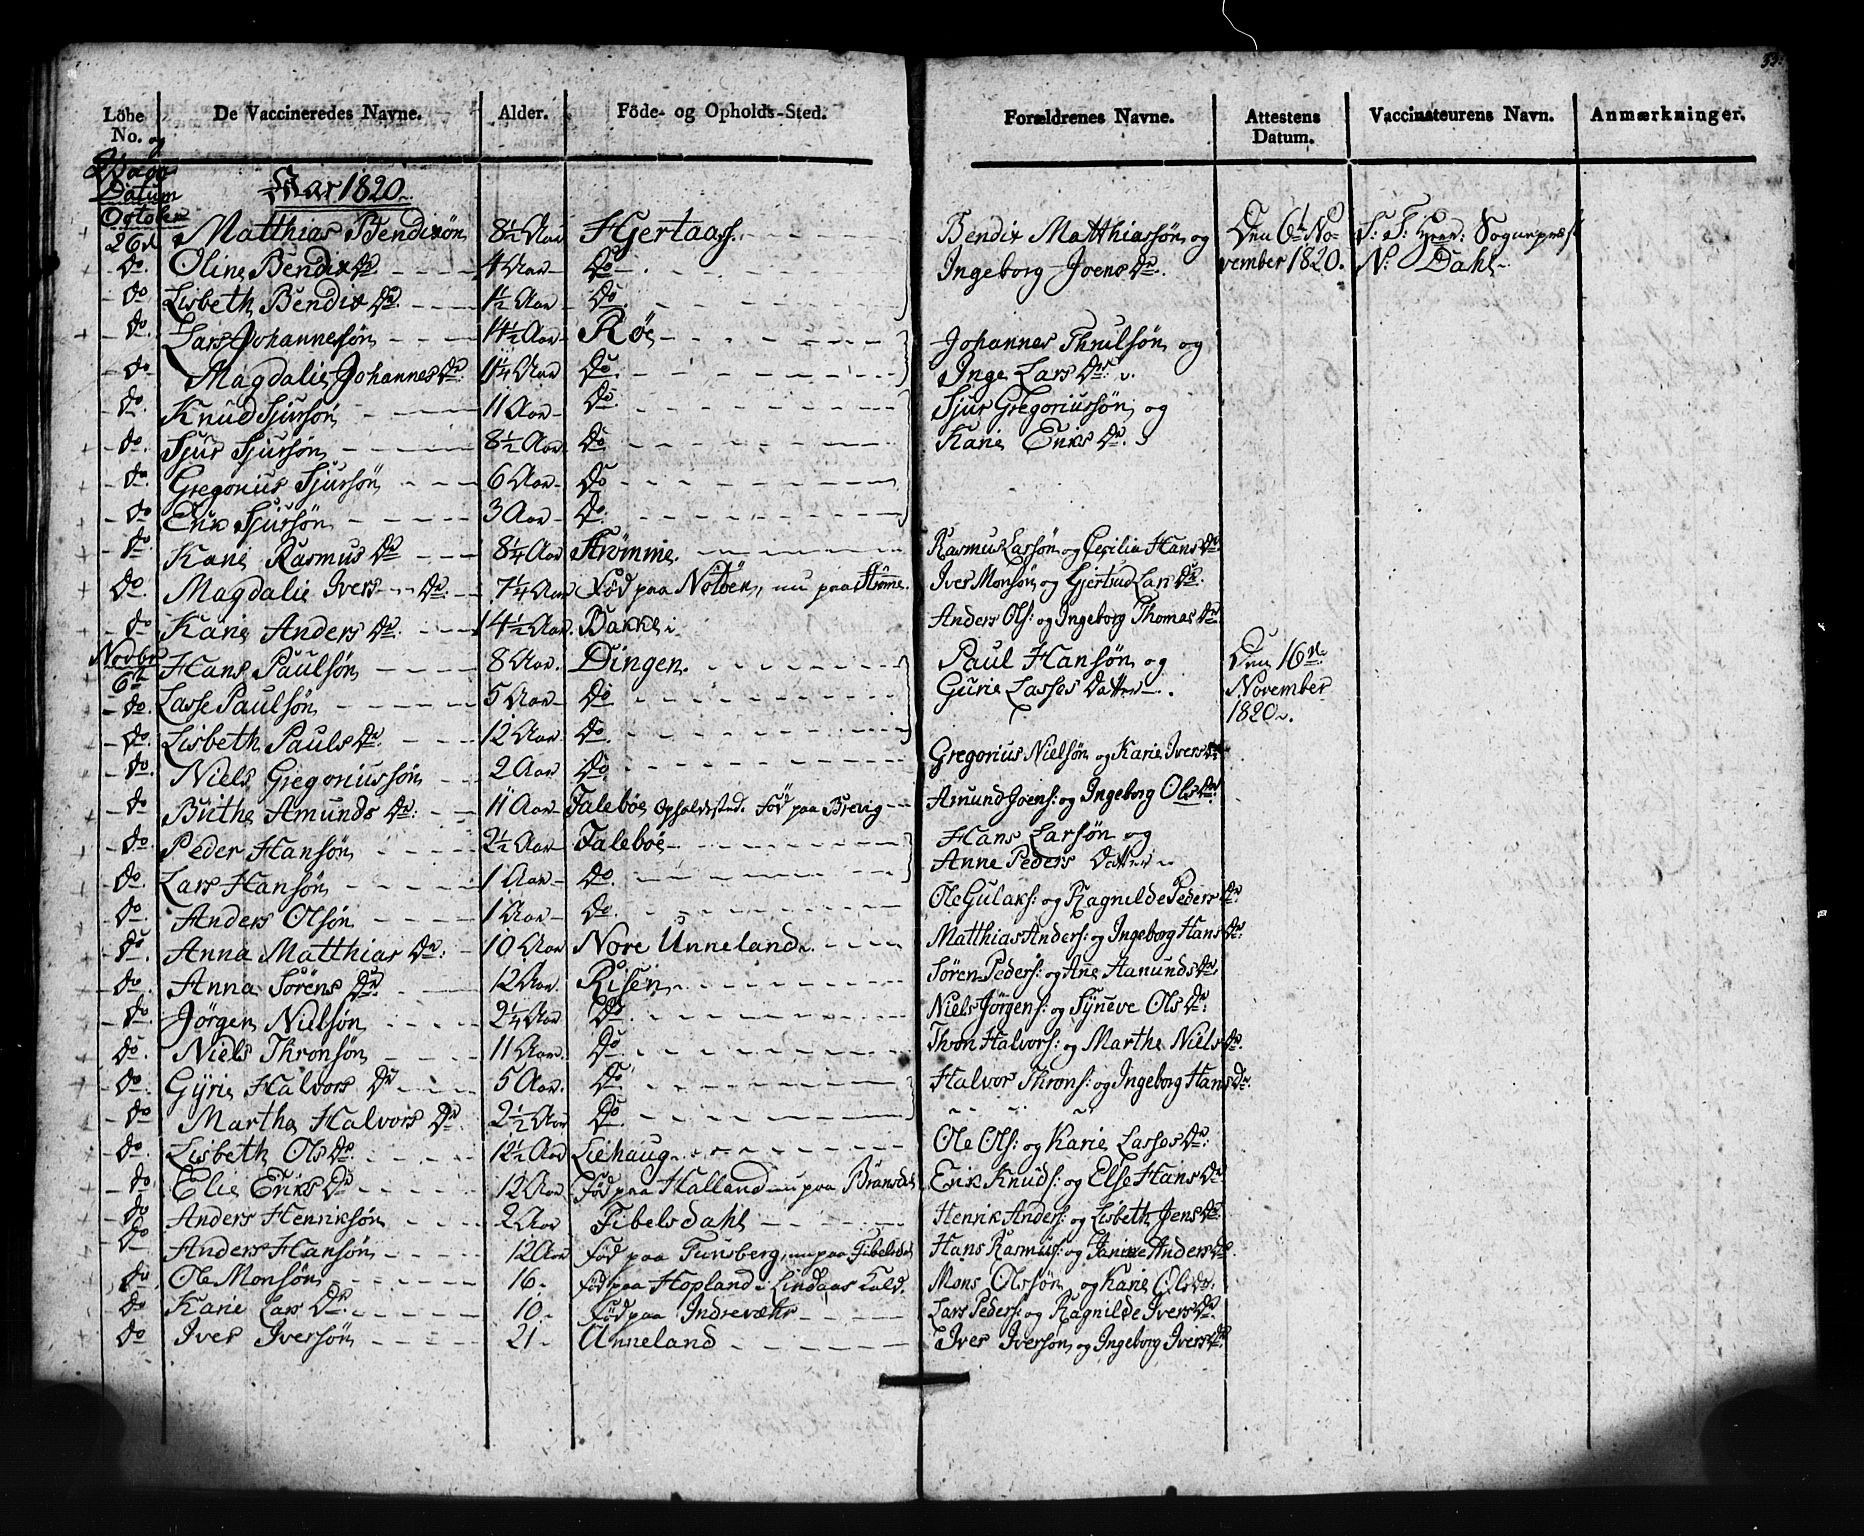 33.
Löbe No. og Datum | De Vaccineredes Navne. | Alder. | Föde- og Opholds-Sted. | Forældrenes Navne. | Attestens Datum. | Vaccinateurens Navn. | Anmærkninger.
Aar 1820.
October 26d | Matthias Bendixön | 8½ Aar | Hjertaas. | Bendix Matthiassön og | Den 6te No- | S: T: Herr: Sognepræst
do. | Oline Bendix Dr. | 4 Aar | Do | Ingeborg Joens Dr. | vember 1820. | N: Dahl
do | Lisbeth Bendix Dr. | 1½ Aar | Do.
do. | Lars Johannesön | 4½ Aar | Röe | Johannes Thrulsön og
do | Magdalie Johannes Dr. | 1¼ Aar | Do. | Inge Lars Dr.
do. | Knud Sjursön | 11 Aar | Do. | Sjur Gregoriussön og
do. | Sjur Sjursön | 8½ Aar | Do | Karie Eriks Dr.
do. | Gregorius Sjursön | 6 Aar | Do
do | Erik Sjursön | 3 Aar | Do.
do. | Kari Rasmus Dr | 8¼ Aar | Strömme. | Rasmus Larsön og Cecilia Hans Dr.
Do. | Magdalie Ivers Dr. | 7¼ Aar | Föd paa Nötöen, nu paa Strömme. | Iver Monsön og Gjertrud Lars Dr.
do | Karie Anders Dr. | 14½ Aar. | Bakke | Anders Ols: og Ingeborg Thomas Dr
Novbr 6te | Hans Paulsön | 8 Aar. | Dingen. | Paul Hansön og | Den 16de
do. | Lasse Paulsön | 5 Aar | Do | Gurie Lasses Datter | November
do. | Lisbeth Pauls Dr. | 12 Aar | Do. | 1820.
do. | Niels Gregoriussön | 2 Aar | Do | Gregorius Nielsön og Karie Ivers Dr
do | Birthe Amunds Dr. | 11 Aar | Faleböe Opholdssted. Föd paa Brevig | Amund Joens: og Ingeborg Ols Dr.
do. | Peder Hansön | 2½ Aar | Faleböe | Hans Larsön og
do. | Lars Hansön | 1 Aar | do. | Anne Peders Datter
do. | Anders Olsön | 1 Aar | Do. | Ole Gulaks: og Ragnilde Peders Dr.
do. | Anna Matthias Dr. | 10 Aar | Nore Unneland. | Matthias Anders: og Ingeborg Hans Dr.
do. | Anna Sörens Dr. | 12 Aar. | Risen | Sören Peders: og Ane Aamunds Dr.
do. | Jörgen Nielsön | 2¼ Aar | Do. | Niels Jörgens: og Syneve Ols Dr.
do. | Niels Thronsön | 11 Aar. | Do. | Thron Halvors: og Marthe Niels Dr.
do. | Gyrie Halvors Dr | 5 Aar. | Do. | Halvor Throns: og Ingeborg Hans Dr.
do | Marthe Halvors Dr. | 2½ Aar | Do. | " " "
do. | Lisbeth Ols Dr. | 12½ Aar | Liehaug. | Ole Ols: og Karie Lasses Dr.
do | Elie Eriks Dr | 12 Aar | Föd paa Halland nu paa | Erik Knuds: og Else Hans Dr
do | Anders Henriksön | 2 Aar | Tibelsdahl | Henrik Anders: og Lisbeth Jens Dr.
do. | Anders Hansön | 12 Aar | Föd paa Tunsberg, nu paa Tibelsdal | Hans Rasmus: og Anders Dr.
do | Ole Monsön | 16 | föd paa Hopland i Lindaas Kald. | Mons Olssön og Karie Ols Dr.
do | Karie Lars Dr. | 10. | föd paa Indrevæhr | Lars Peders: og Ragnilde Ivers Dr.
do | Iver Iversön | 21 | Unneland | Iver Iversön og Ingeborg Ivers Dr.